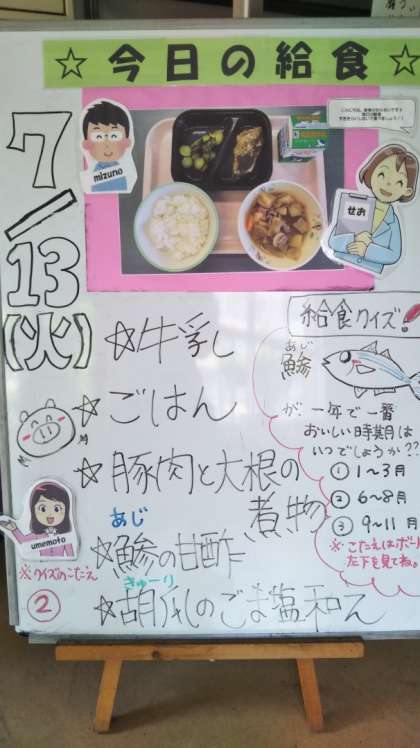 ☆ 今日の給食 ☆
7/13(火)
mizuno
せお
☆牛乳
☆ごはん
☆豚肉と大根の
煮物
あじ
☆鯵の甘酢
きゅーり
☆胡瓜のごま塩和え
umemoto
※クイズのこたえ
②
給食クイズ!
あじ
鯵
が、一年で一番
おいしい時期は
いつでしょうか??
①1~3月
②6~8月
③9~11月
※こたえはボード
左下を見てね。